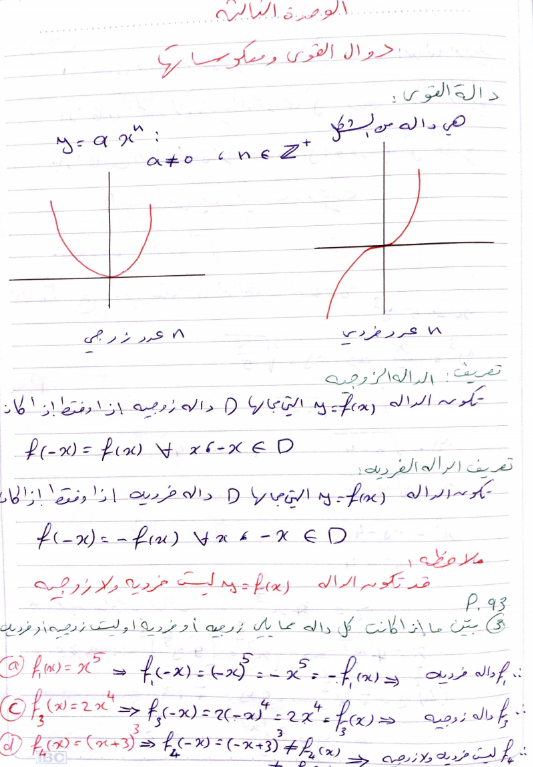 الوحدة الثالثة
دوال القوى ومعكوساتها
دالة القوى:
هي دالة من الشكل
y = a xⁿ :
a ≠ 0 ، n ∈ Z⁺
n عدد فردي
n عدد زوجي
تعريف: الدالة الزوجية
تكون الدالة y = f(x) التي مجالها D دالة زوجية إذا وفقط إذا كان
f(-x) = f(x) ∀ x ، -x ∈ D
تعريف الدالة الفردية:
تكون الدالة y = f(x) التي مجالها D دالة فردية إذا وفقط إذا كان
f(-x) = - f(x) ∀ x ، -x ∈ D
ملاحظة:
قد تكون الدالة y = f(x) ليست فردية ولا زوجية
P. 93
③ بيّن ما إذا كانت كل دالة مما يلي زوجية أو فردية أو ليست زوجية أو فردية
ⓐ f₁(x) = x⁵ ⇒ f₁(-x) = (-x)⁵ = -x⁵ = -f₁(x) ⇒ ∴ f₁ دالة فردية
ⓒ f₃(x) = 2x⁴ ⇒ f₃(-x) = 2(-x)⁴ = 2x⁴ = f₃(x) ⇒ ∴ f₃ دالة زوجية
ⓓ f₄(x) = (x+3)³ ⇒ f₄(-x) = (-x+3)³ ≠ f₄(x) ⇒ ∴ f₄ ليست فردية ولا زوجية